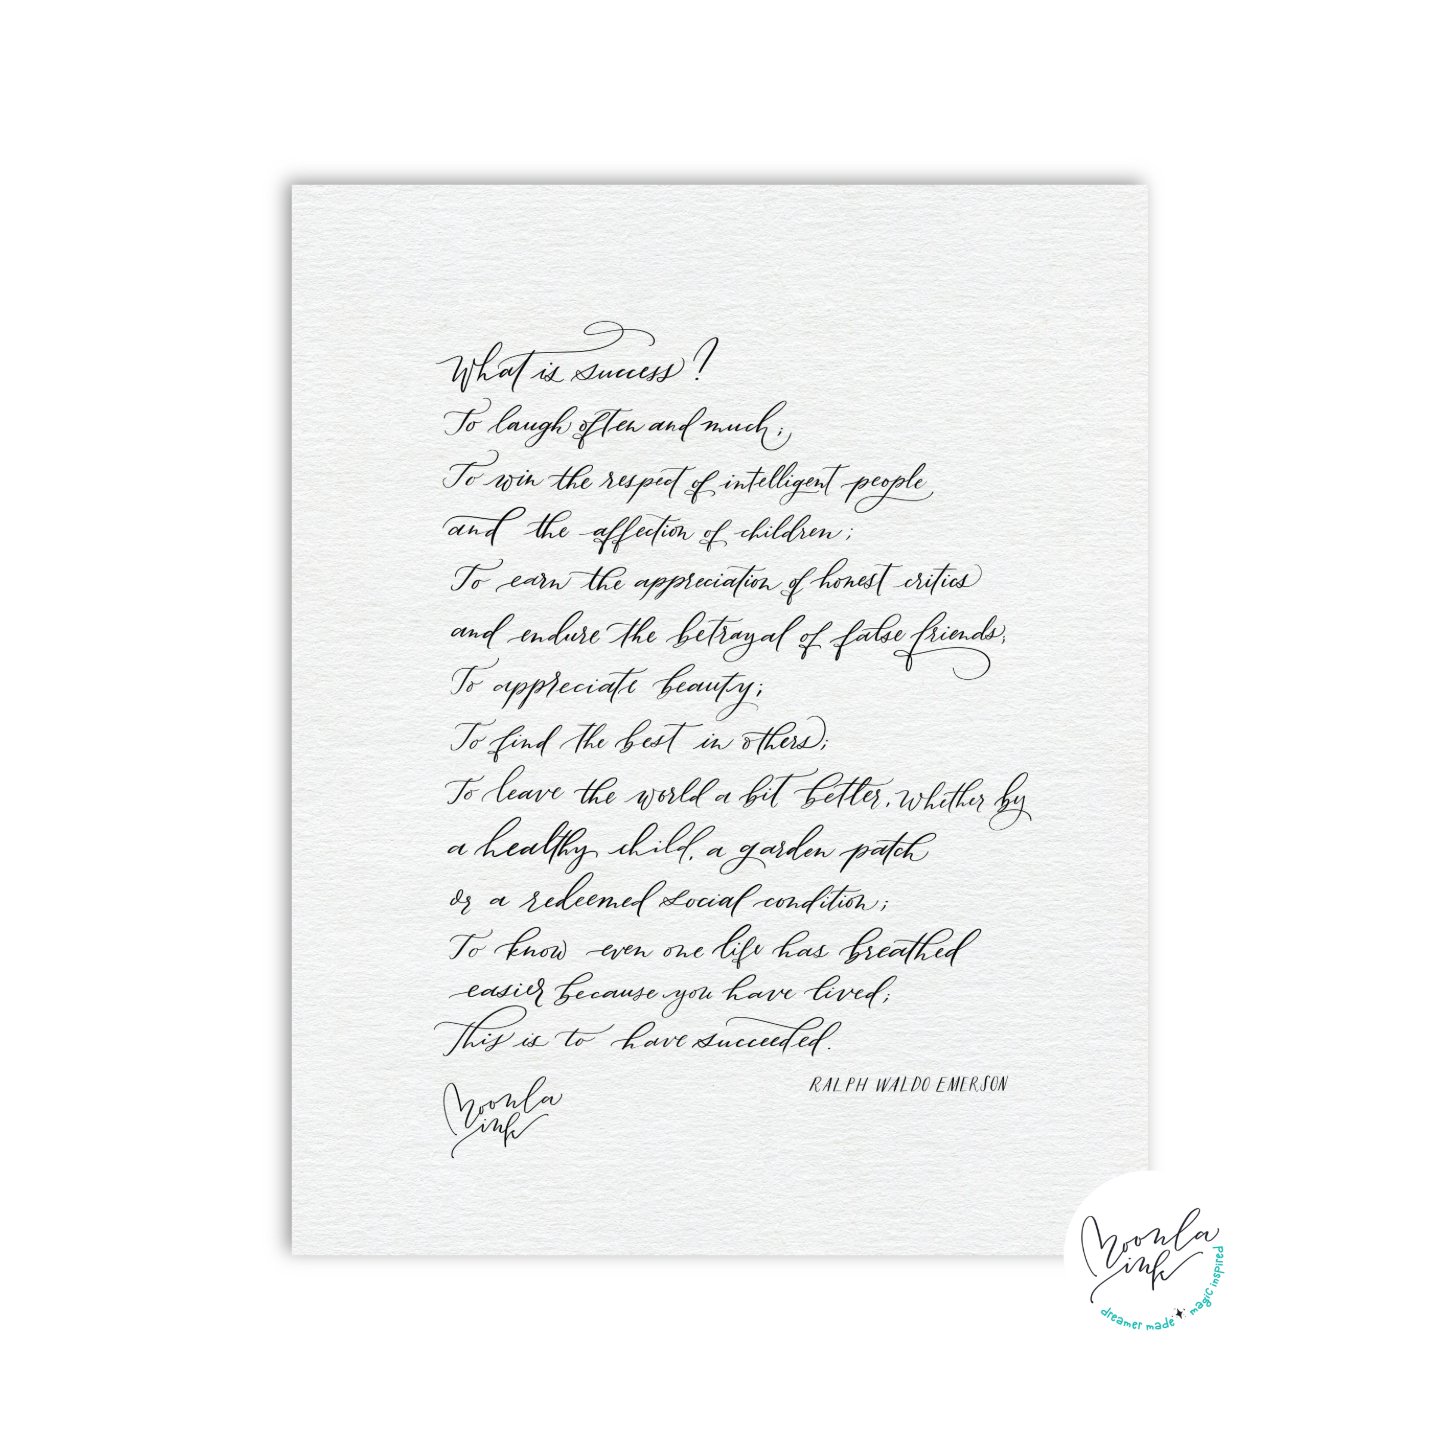 What is success?
To laugh often and much;
To win the respect of intelligent people
and the affection of children;
To earn the appreciation of honest critics
and endure the betrayal of false friends;
To appreciate beauty;
To find the best in others;
To leave the world a bit better, whether by
a healthy child, a garden patch
or a redeemed social condition;
To know even one life has breathed
easier because you have lived;
This is to have succeeded.
RALPH WALDO EMERSON
Moonla
ink
Moonla
ink
dreamer made magic inspired